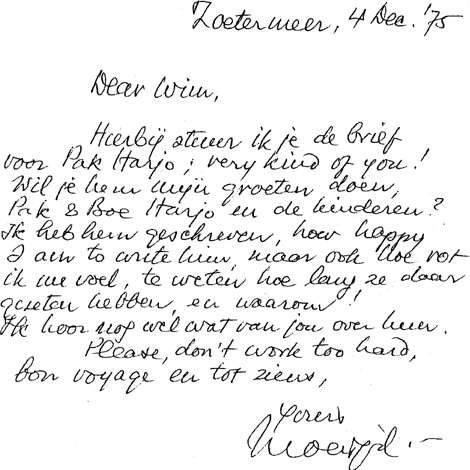 Zoetermeer, 4 Dec. '75
Dear Wim,
Hierbij stuur ik je de brief
voor Pak Harjo; very kind of you!
Wil je hem mijn groeten doen,
Pak & Boe Harjo en de kinderen?
Ik heb hem geschreven, how happy
I am to write him, maar ook hoe rot
ik me voel, te weten hoe lang ze daar
gezeten hebben, en waarom!
Ik hoor nog wel wat van jou over hem.
Please, don't work too hard,
bon voyage en tot ziens,
Yours